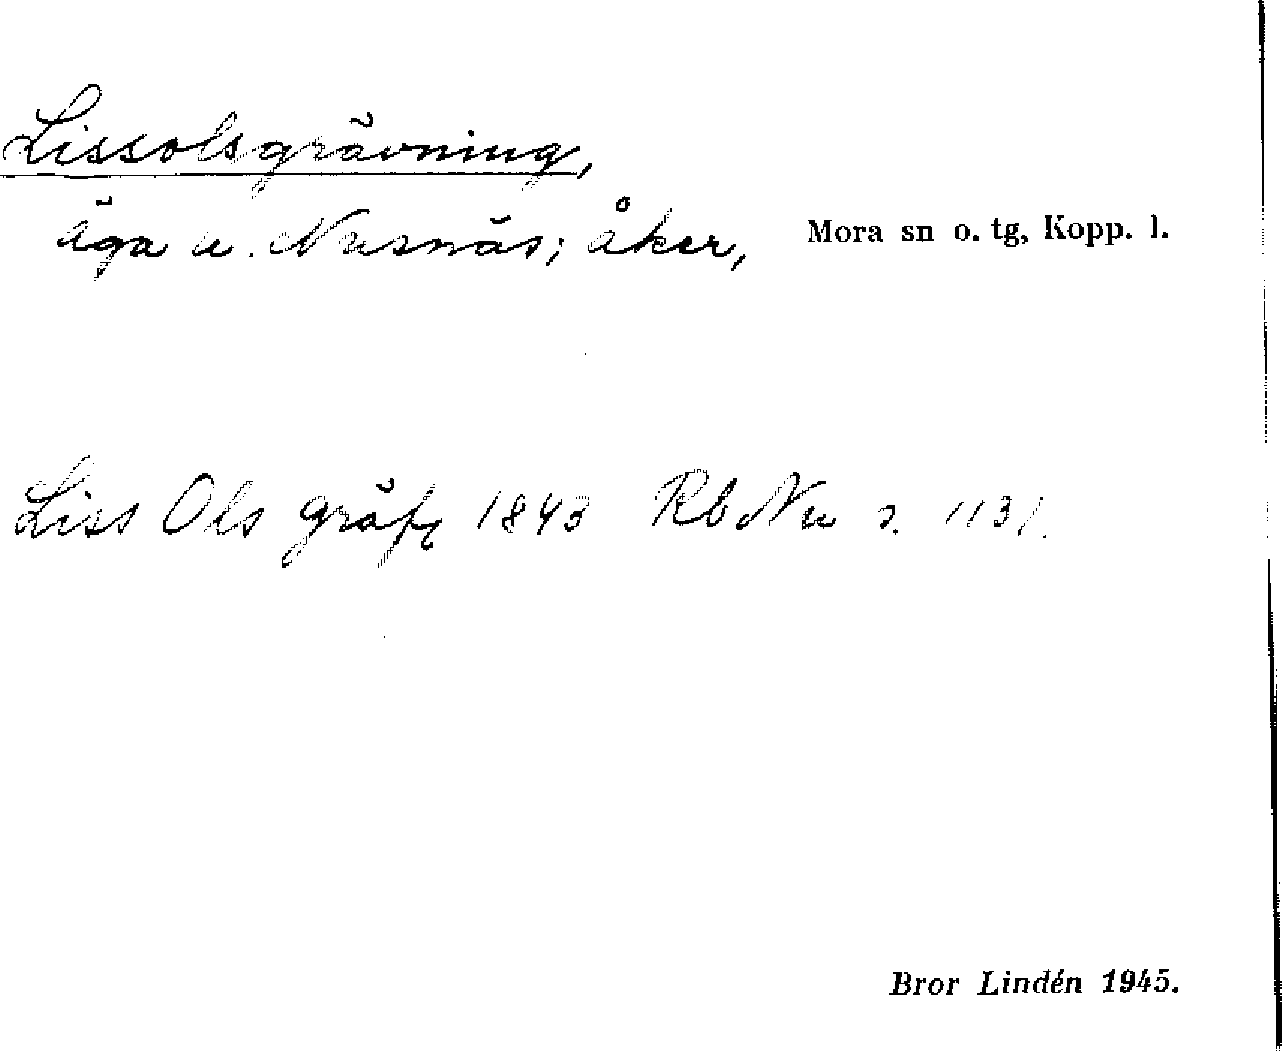 Lissolsgrävning,
äga u. Nusnäs; åker, Mora sn o. tg, Kopp. l.
Liss Ols gräfg 1843 Rb Nu s. 1131.
Bror Lindén 1945.